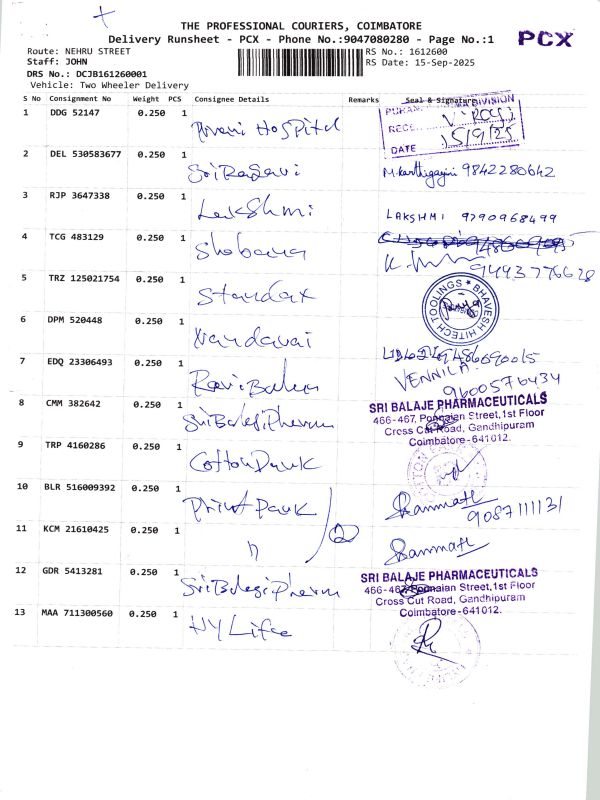 THE PROFESSIONAL COURIERS, COIMBATORE
Delivery Runsheet - PCX - Phone No.:9047080280 - Page No.:1
PCX
Route: NEHRU STREET
RS No.: 1612600
Staff: JOHN
RS Date: 15-Sep-2025
DRS No.: DCJB161260001
Vehicle: Two Wheeler Delivery
S No Consignment No Weight PCS Consignee Details Remarks Seal & Signature
1 DDG 52147 0.250 1 Hospital
DIVISION
DATE 15/9/25
2 DEL 530583677 0.250 1 Sri Ragavi M.Karthigayini 9842280642
3 RJP 3647338 0.250 1 Lakshmi LAKSHMI 9790968499
4 TCG 483129 0.250 1 Shobana
9443776628
5 TRZ 125021754 0.250 1 Standax
BHAVESH HITECH TOOLINGS
6 DPM 520448 0.250 1 Nandavai
7 EDQ 23306493 0.250 1 Ravi Balan VENNILA
9600576434
8 CMM 382642 0.250 1 Sri Balaji Pharm
SRI BALAJE PHARMACEUTICALS
466-467, Ponnaian Street,1st Floor
Cross Cut Road, Gandhipuram
Coimbatore-641012.
9 TRP 4160286 0.250 1 Cotton Park
10 BLR 516009392 0.250 1 Print Park
9087111131
11 KCM 21610425 0.250 1 2
12 GDR 5413281 0.250 1 Sri Balaji Pharm
SRI BALAJE PHARMACEUTICALS
466-467, Ponnaian Street,1st Floor
Cross Cut Road, Gandhipuram
Coimbatore-641012.
13 MAA 711300560 0.250 1 NY Life